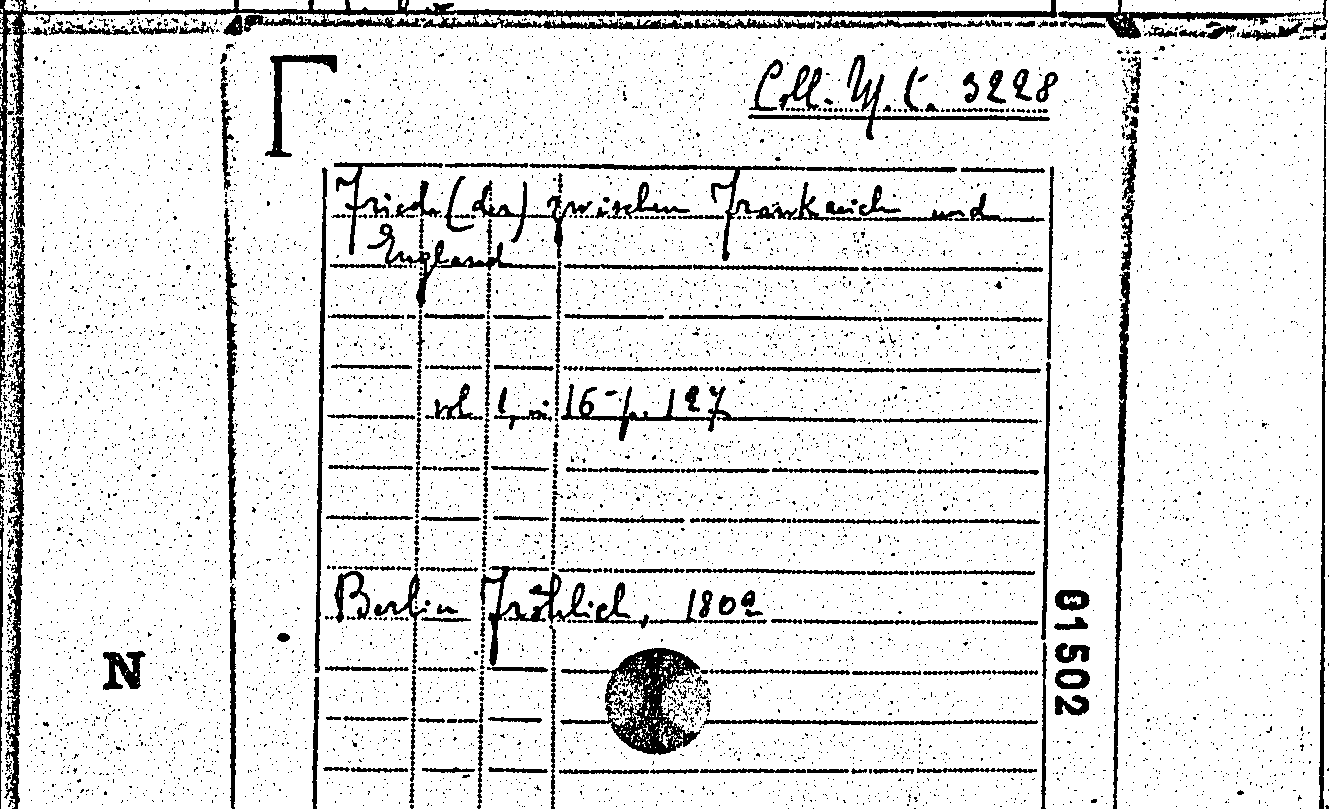 Coll. M. C. 3228
Friede (der) zwischen Frankreich und
England
vol 1, in 16- p. 127
Berlin Fröhlich, 1802
01502
N